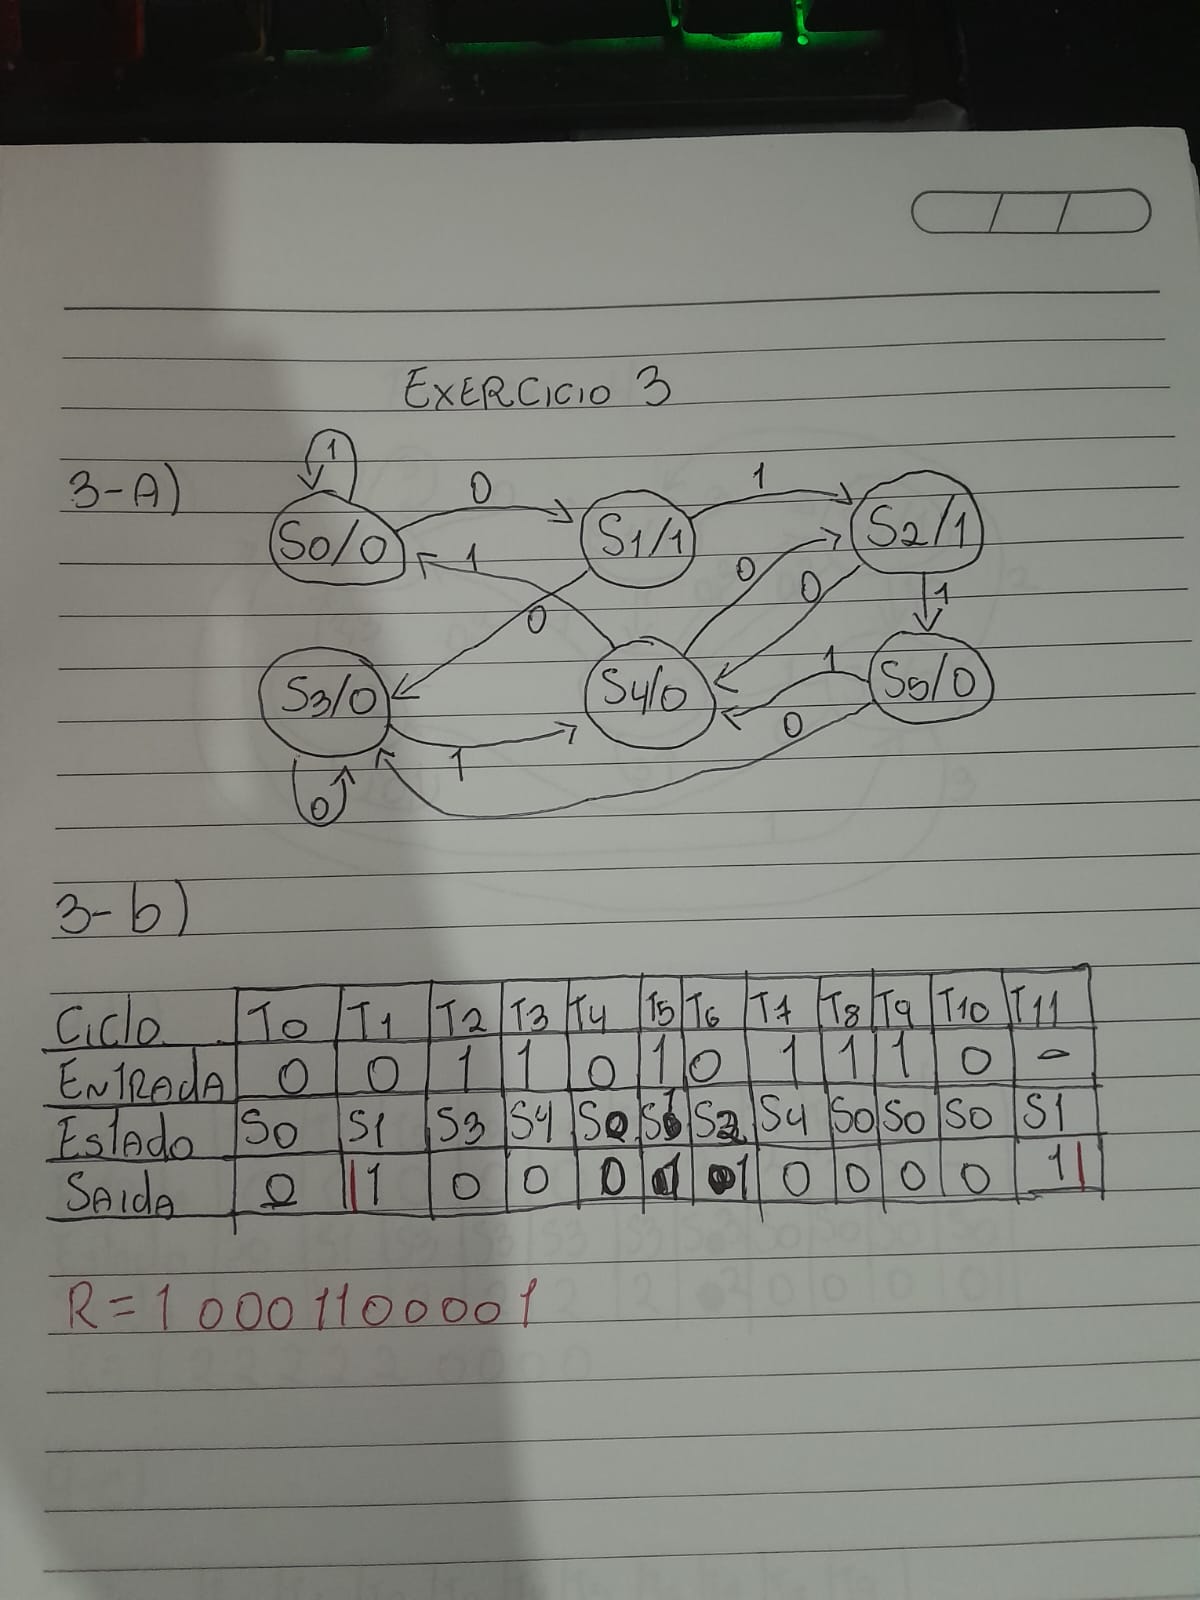 EXERCICIO 3
3-A)
1
0
1
S0/0
S1/1
S2/1
1
0
0
0
1
S3/0
S4/0
S5/0
1
0
1
0
3-b)
Ciclo T0 T1 T2 T3 T4 T5 T6 T7 T8 T9 T10 T11
ENTRADA 0 0 1 1 0 1 0 1 1 1 0 -
Estado S0 S1 S3 S4 S0 S1 S2 S4 S0 S0 S0 S1
SAIDA 0 1 0 0 0 1 1 0 0 0 0 1
R = 1 0 0 0 1 1 0 0 0 0 1